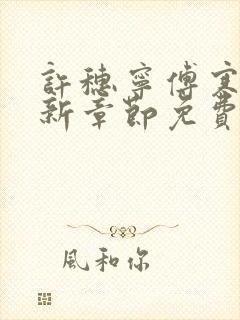 許穗寧傅寒
新章節免費
風和你